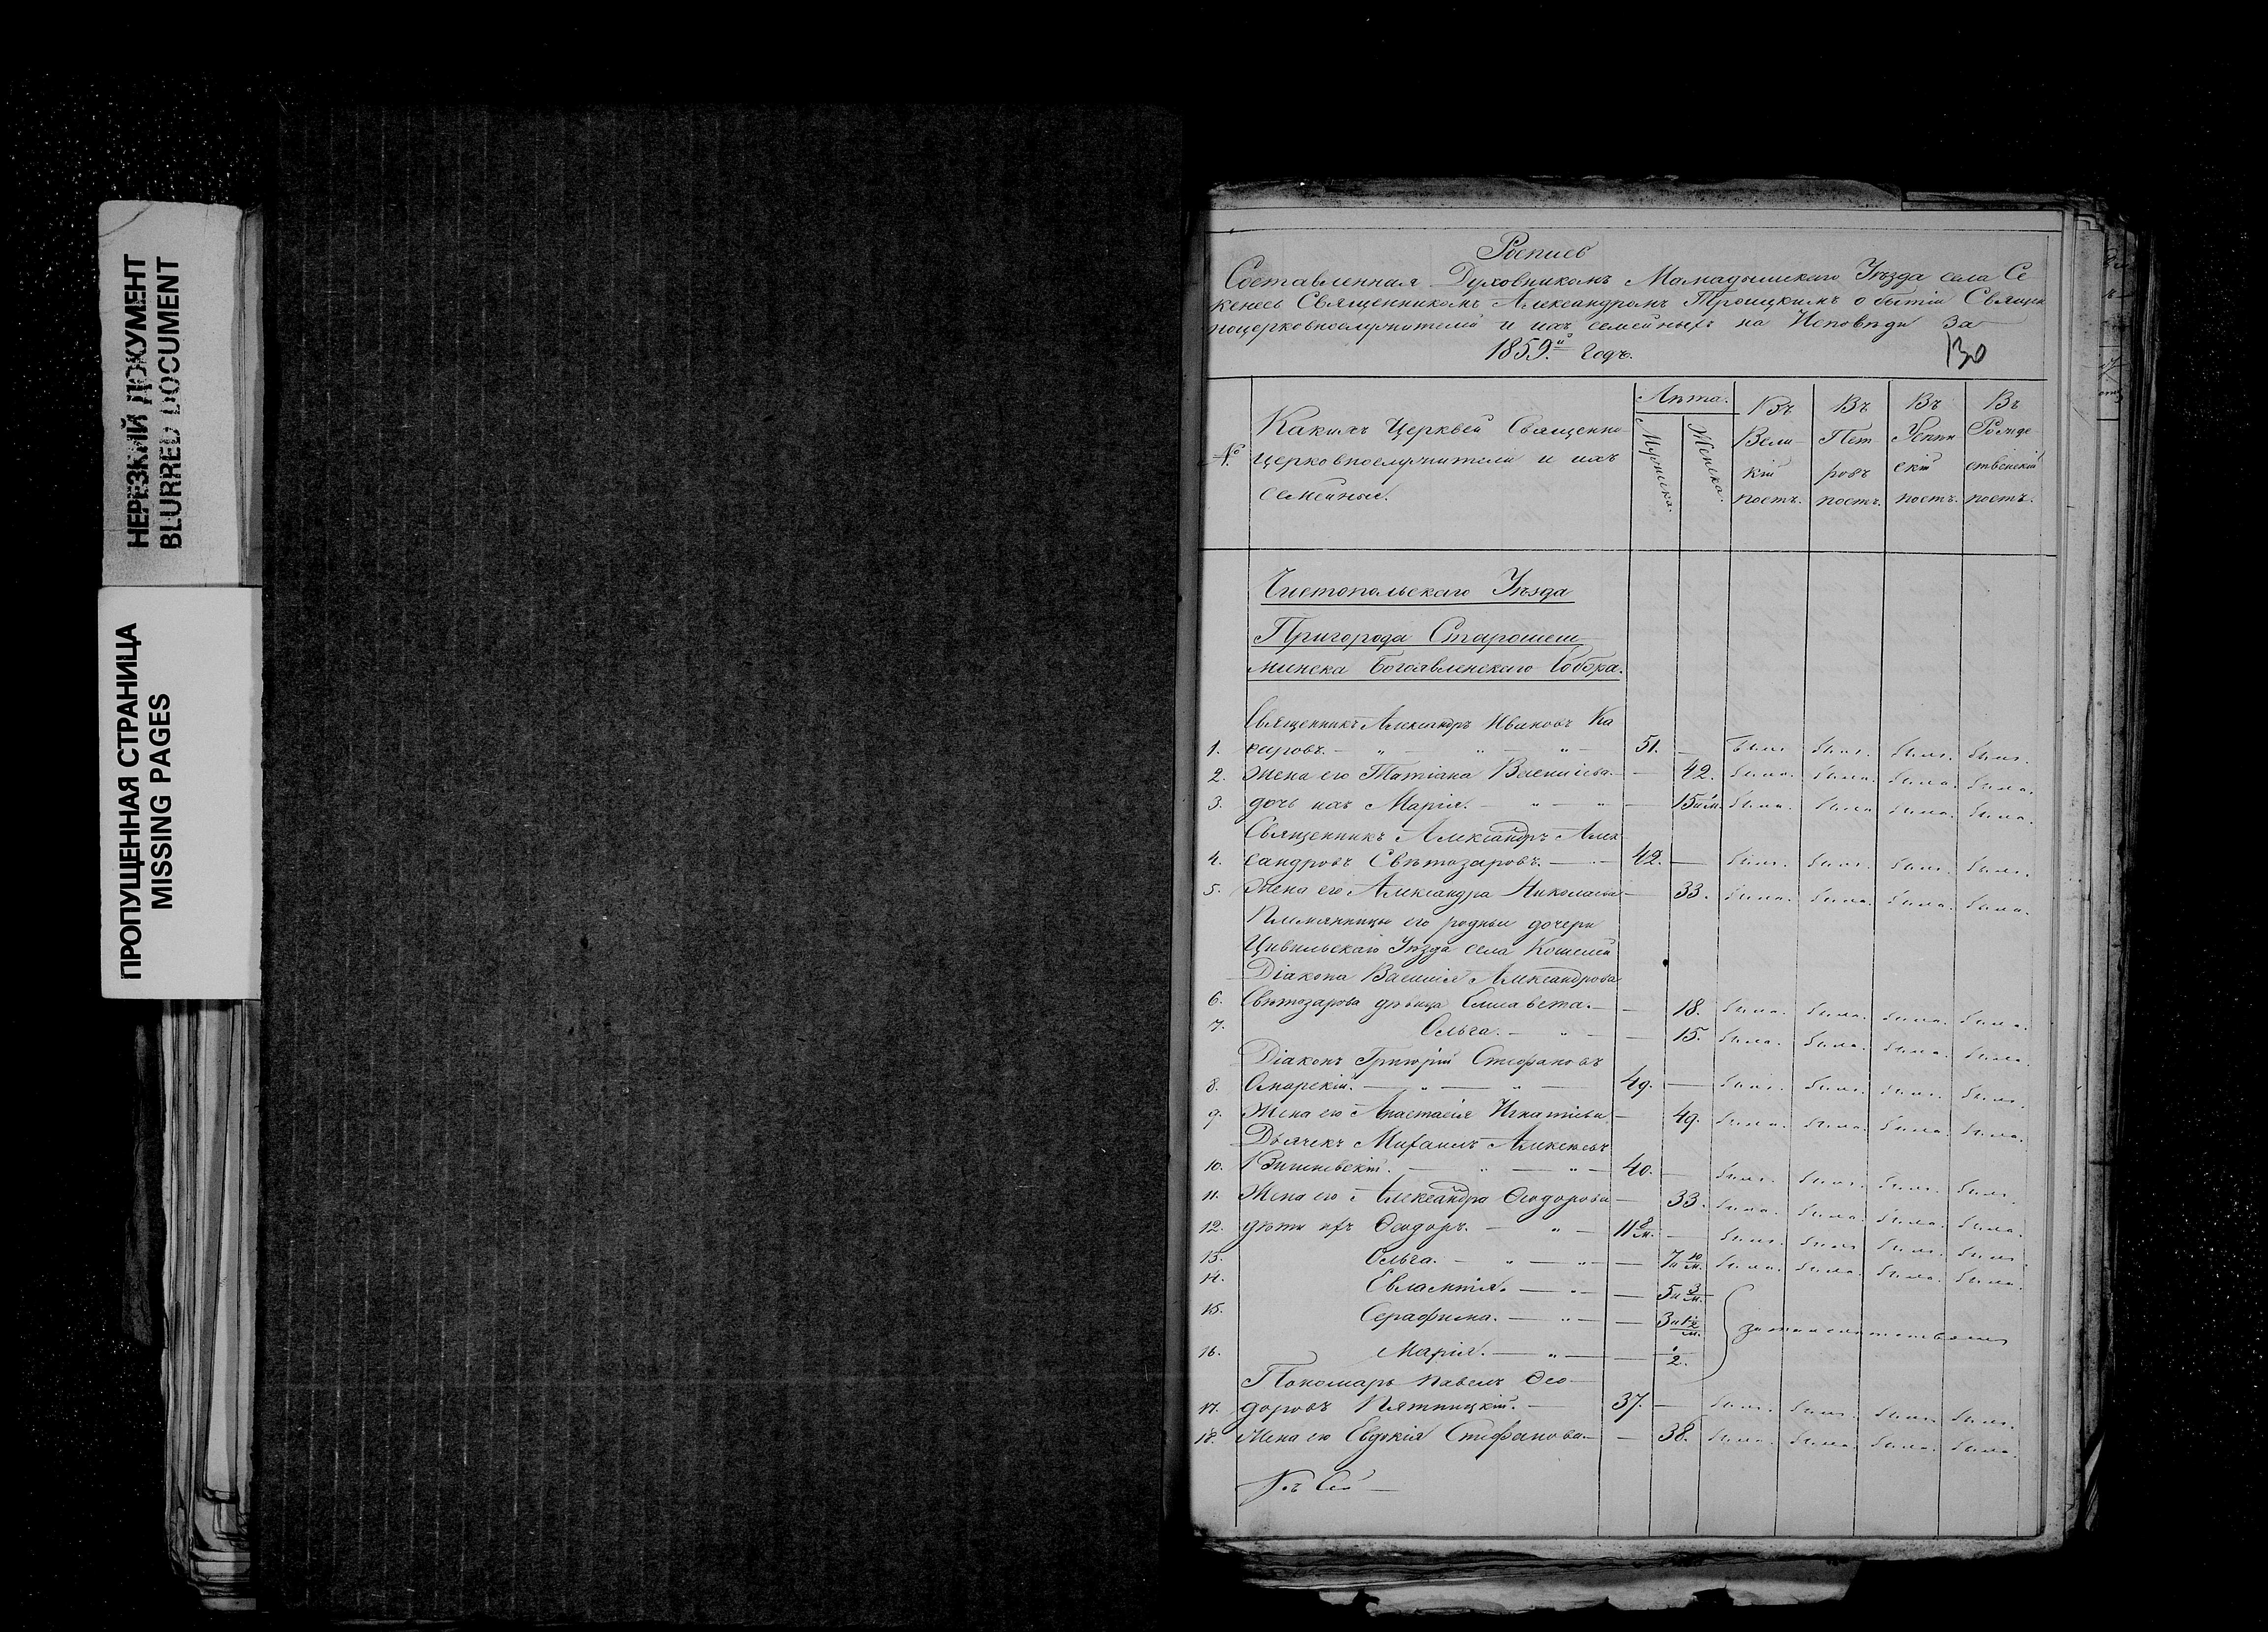 НЕРЕЗКИЙ ДОКУМЕНТ
BLURRED DOCUMENT
ПРОПУЩЕННАЯ СТРАНИЦА
MISSING PAGES
Роспись
Составленная Духовникомъ Мамадышскаго Уѣзда села Се
кенесь Священникомъ Александромъ Троицкимъ о бытіи Священ
ноцерковнослужителей и ихъ семейныхъ на Исповѣди за
1859й годъ.
130
№
Какихъ Церквей Священно
церковнослужители и ихъ
семейные.
Лѣта.
Мужеска.
Женска.
Въ Вели кій постъ.
Въ Пет ровъ постъ.
Въ Успен скій постъ.
Въ Рожде ственскій постъ.
Чистопольскаго Уѣзда
Пригорода Старошеш
минска Богоявленскаго Собора.
Священникъ Александръ Ивановъ
1. 51. — былъ былъ. былъ. былъ.
2. Жена его Татіана Василиева. — 42. была. была. была. была.
3. дочь ихъ Марія. — 15 была. была была. была.
Священникъ Александръ Алек
4. сандровъ Свѣтозаровъ. — 42. — былъ. былъ. былъ. былъ.
5. Жена его Александра Николаева — 33. была. была. была. была.
Племянницы его родныи дочери
Цивильскаго Уѣзда села Кошелей
Діакона Василія Александрова
6. Свѣтозарова дѣвица Елисавета. — 18. была. была. была. была.
7. Ольга. — 15. была. была. была. была.
Діаконъ Григорій Стефановъ
8. Омарскій. — 49. — былъ. былъ. былъ. былъ.
9. Жена его Анастасія Игнатіева — 49. была. была. была. была.
Дьячекъ Михаилъ Алексѣевъ
10. Вишневскій. — 40. — былъ. былъ. былъ. былъ.
11. Жена его Александра Ѳеодорова — 33. была. была. была. была.
12. дѣти ихъ Ѳеодоръ. — 11 8/м. — былъ. былъ былъ. былъ.
13. Ольга. — 7 и 10/м. была. была. была. была.
14. Евлампія. — 5 и 3/м.
15. Серафима. — 3 и
16. Марія. — 1/2.
Пономарь Павелъ Ѳео
17. доровъ Пятницкій. — 37. — былъ. былъ. былъ. былъ.
18. Жена его Евдокія Стефанова. — 38. была. была. была. была.